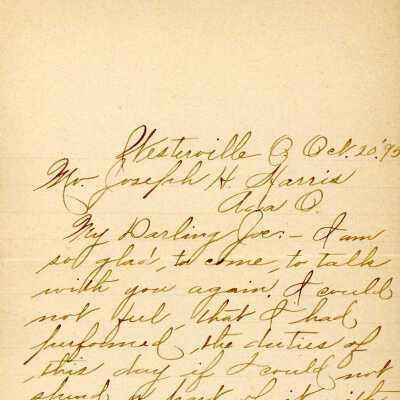 Westerville O Oct. 20. '95
Mr. Joseph H. Harris
Ada O.
My Darling Joe:- I am
so glad, to come, to talk
with you again. I could
not feel, that I had
performed the duties of
this day if I could not
spend a part of it with